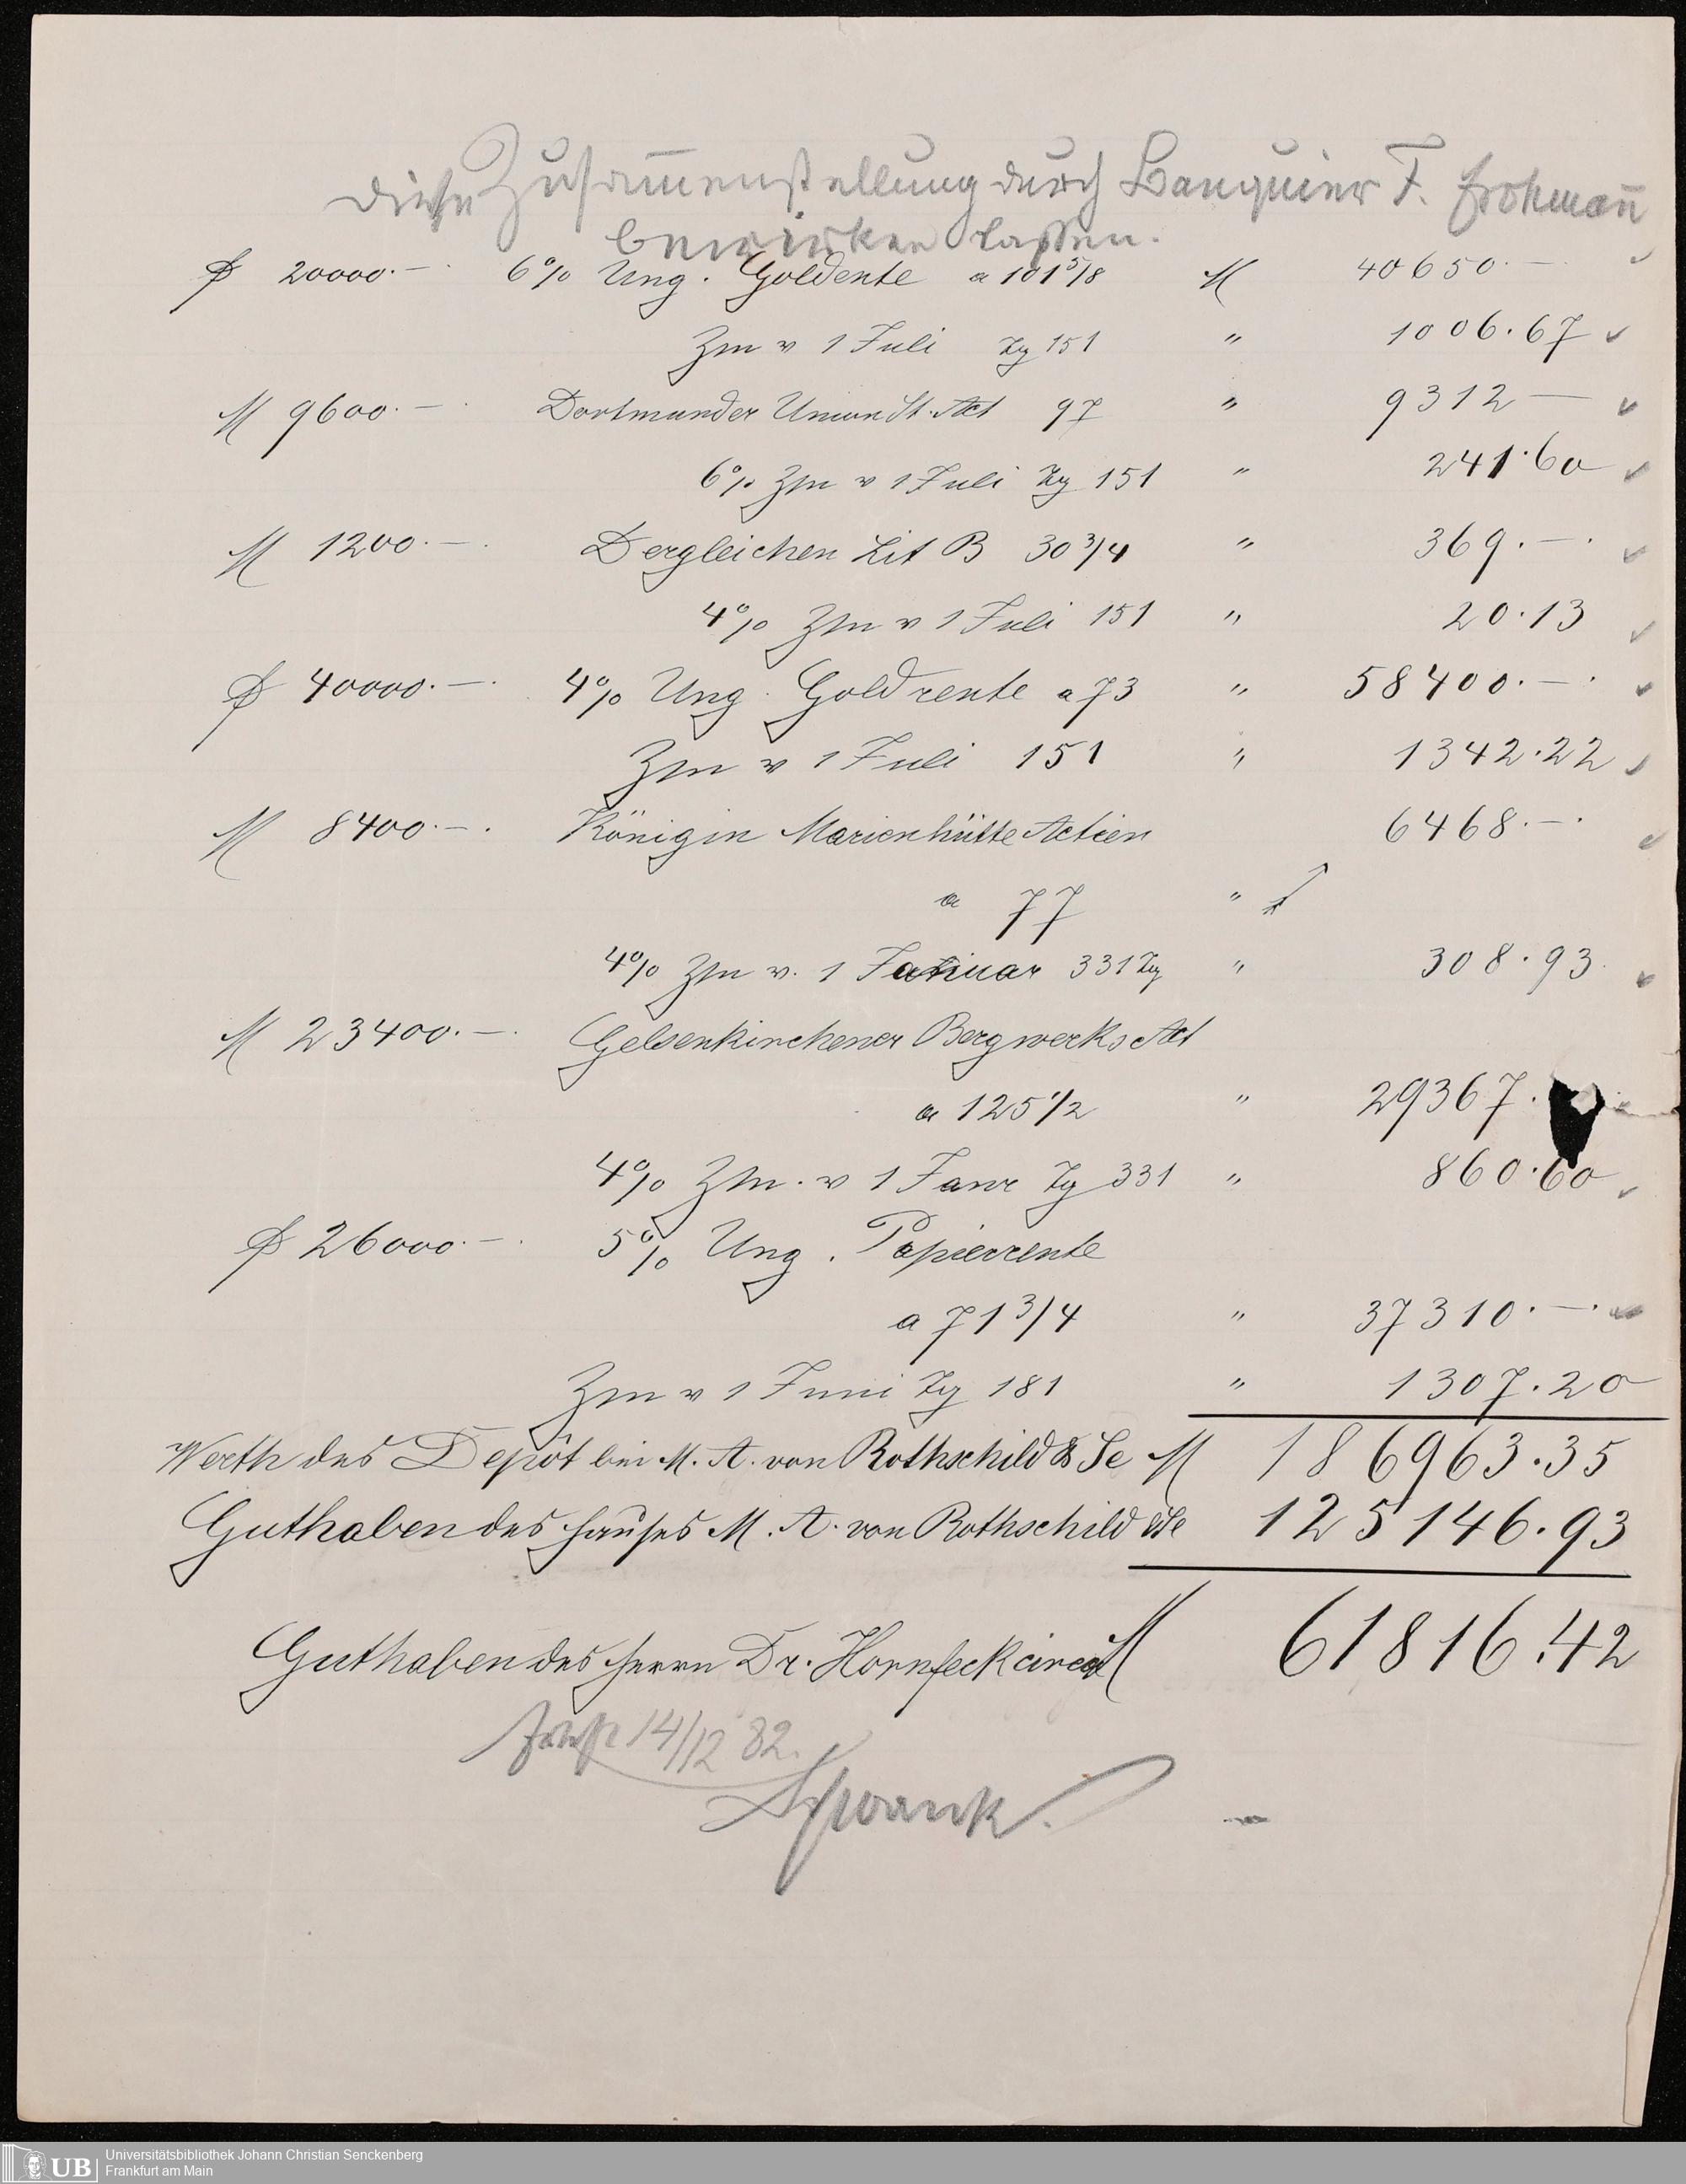 Diese Zusam̄enstellung durch Banquier F. Frohman̄
bewirken lassen.
fl 20000.— 6% Ung. Goldente a 101 5/8 M 40650.—
Zin v 1 Juli Tg 151 " 1006.67
M 9600.— Dortmunder Union St. Act 97 " 9312 —
6% Zin v 1 Juli Tg 151 " 241.60
M 1200.— Dergleichen Lit B 30 3/4 " 369.—.
4% Zin v 1 Juli 151 " 20.13
fl 40000.— 4% Ung. Goldrente a 73 " 58400.—.
Zin v 1 Juli 151 " 1342.22
M 8400.—. Königin Marienhütte Actien 6468.—.
a 77 "
4% Zin v. 1 Januar 331 Tg " 308.93
M 23400.—. Gelsenkirchener Bergwerks Act
a 125 1/2 " 29367.
4% Zin. v 1 Janr Tg 331 " 860.60
fl 26000.—. 5% Ung. Papierrente
a 71 3/4 " 37310.—.
Zin v 1 Juni Tg 181 " 1307.20
Werth des Depôt bei M. A. von Rothschild & Se M 186963.35
Guthaben des Hauses M. A. von Rothschild & Se 125146.93
Guthaben des Herrn Dr. Hornfeck circa M 61816.42
14/12 82.
Schwank.
UB
Universitätsbibliothek Johann Christian Senckenberg
Frankfurt am Main